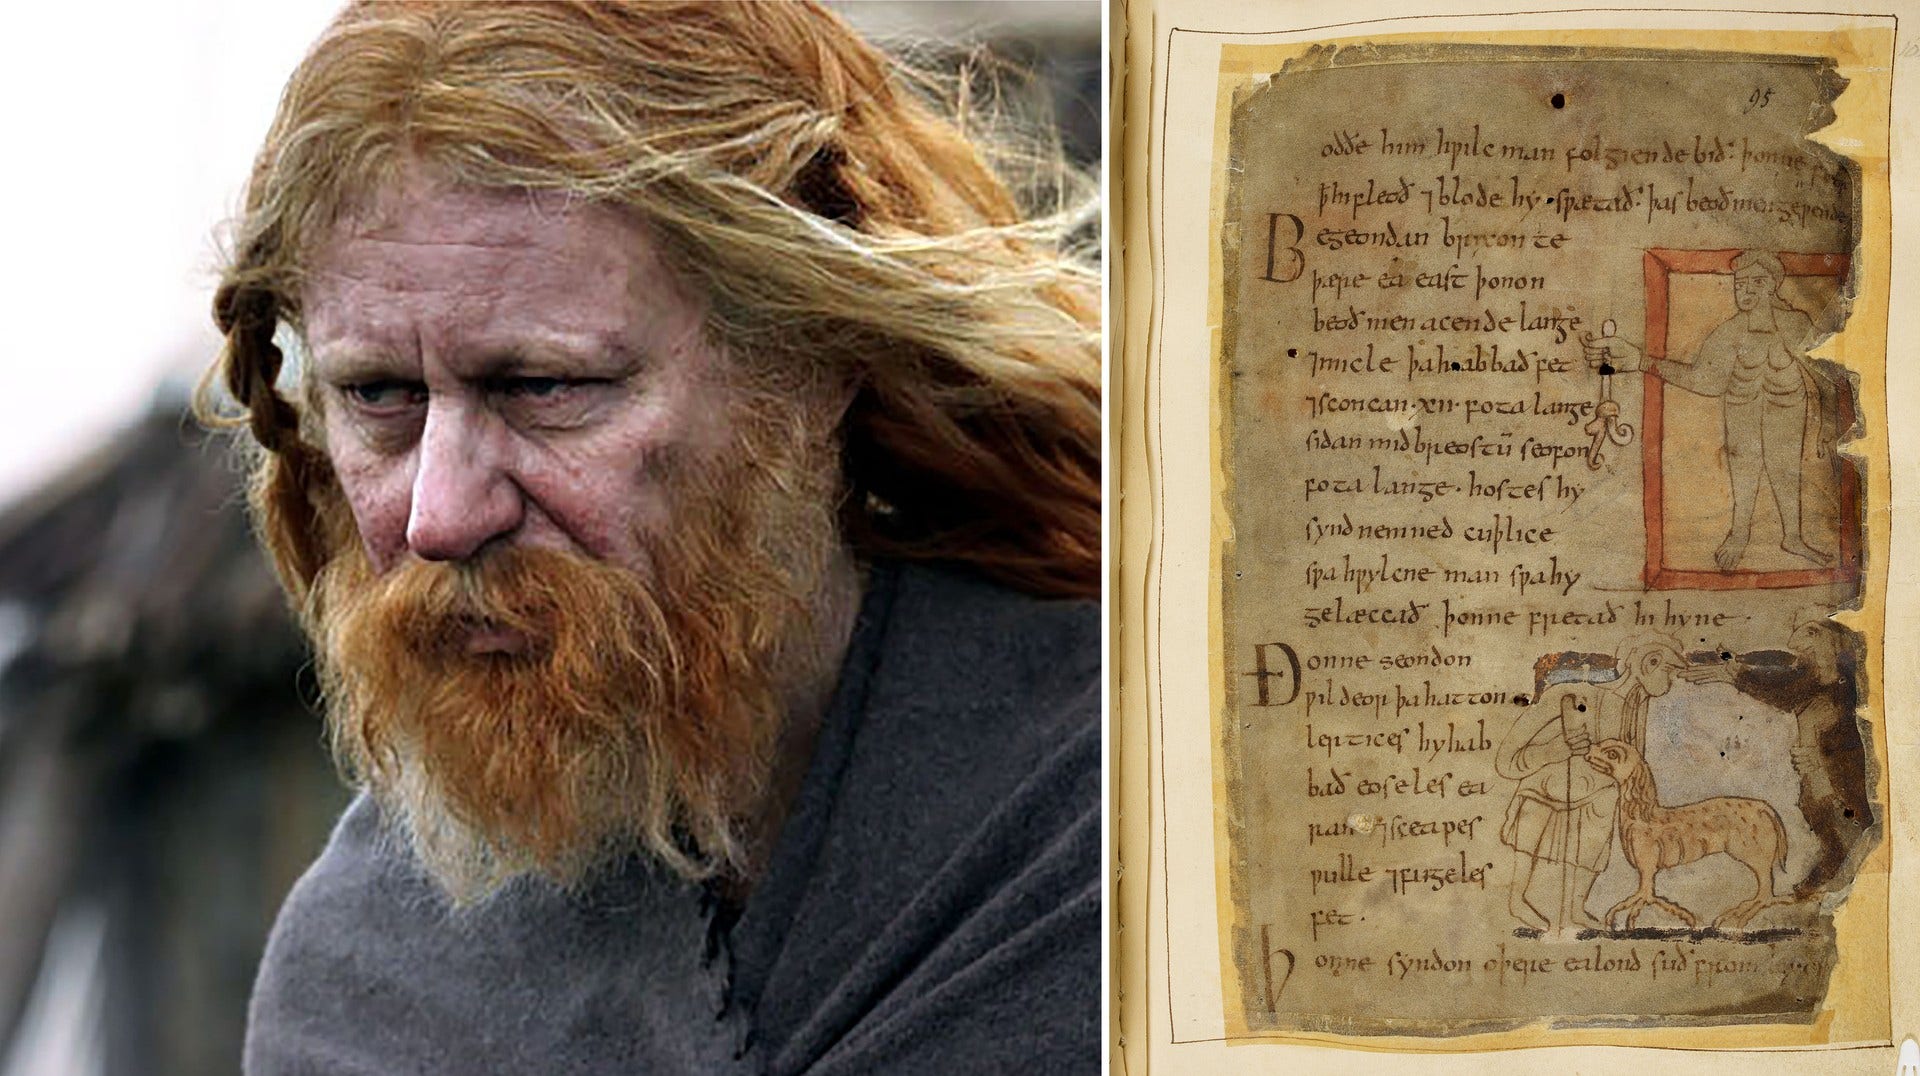 95
oððe him hƿilc man folgiende bið· þonne
hi fleoð ⁊ blode hy sƿætað· þas beoð men
Begeondan brixonte
þære ea east þonon
beoð men acende lange
⁊ micle þa habbað fet
⁊ sconcan ·xii· fota lange
sidan mid breostū seofon
fota lange· hostes hy
synd nemned cuþlice
sƿa hƿylcne man sƿa hy
gelæccað þonne fretað hi hyne·
Ðonne seondon
ƿildeor þa hatton
lertices hy hab
bað eoseles ea
ran ⁊ sceapes
ƿulle ⁊ fugeles
fet·
þonne syndon oþere ealond suð from